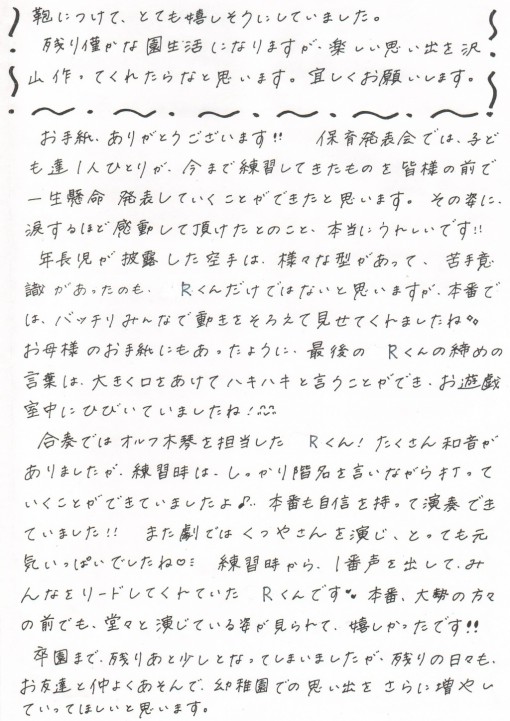 鞄につけて、とても嬉しそうにしていました。
残り僅かな園生活になりますが、楽しい思い出を沢
山作ってくれたらなと思います。宜しくお願いします。
お手紙、ありがとうございます!! 保育発表会では、子ど
も達1人ひとりが、今まで練習してきたものを皆様の前で
一生懸命 発表していくことができたと思います。その姿に、
涙するほど感動して頂けたとのこと、本当にうれしいです!!
年長児が披露した空手は、様々な型があって、苦手意
識があったのも、Rくんだけではないと思いますが、本番で
は、バッチリみんなで動きをそろえて見せてくれましたね
お母様のお手紙にもあったように、最後の Rくんの締めの
言葉は、大きく口をあけてハキハキと言うことができ、お遊戯
室中にひびいていましたね!
合奏ではオルフ木琴を担当した Rくん! たくさん和音が
ありましたが、練習時は、しっかり階名を言いながら打って
いくことができていましたよ♪ 本番も自信を持って演奏でき
ていました!! また劇では くつやさんを演じ、とっても元
気いっぱいでしたね♡ 練習時から、1番声を出して、み
んなをリードしてくれていた Rくんです 本番、大勢の方々
の前でも、堂々と演じている姿が見られて、嬉しかったです!!
卒園まで、残りあと少しとなってしまいましたが、残りの日々も、
お友達と仲よくあそんで、幼稚園での思い出をさらに増やし
ていってほしいと思います。